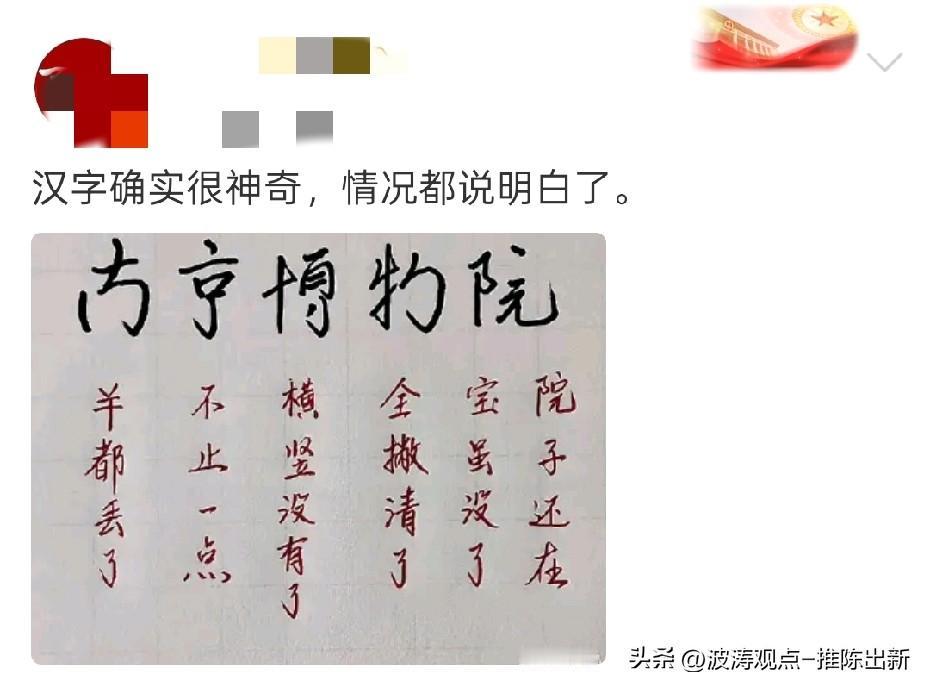 汉字确实很神奇，情况都说明白了。
南京博物院
羊都丢了
不止一点
横竖没有了
全撇清了
宝虽没了
院子还在
头条 @波涛观点-推陈出新